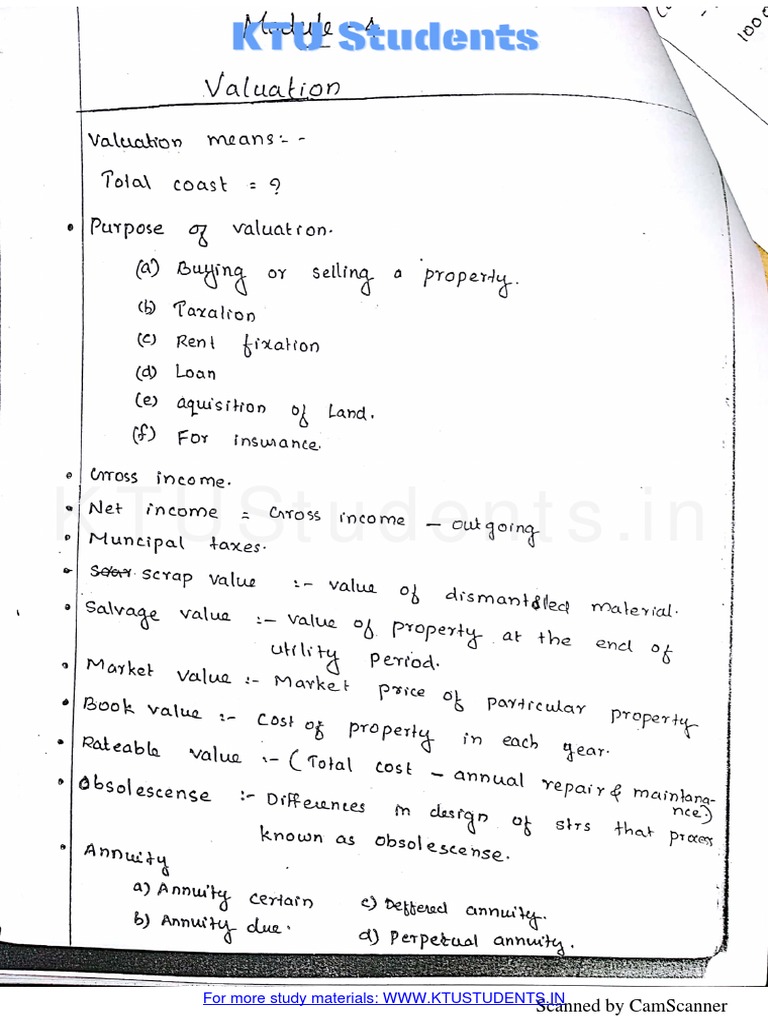 Module - 4
KTU Students
Valuation
Valuation means:- -
Total coast = ?
• Purpose of valuation.
(a) Buying or selling a property.
(b) Taxation
(c) Rent fixation
(d) Loan
(e) aquisition of Land.
(f) For insurance.
• Gross income.
• Net income = Gross income - outgoing
• Muncipal taxes.
• scrap value :- value of dismantled material.
• Salvage value :- value of property at the end of
utility period.
• Market value :- Market price of particular property
• Book value :- Cost of property in each year.
• Rateable value :- (Total cost - annual repair & maintana-
nce)
• Obsolescense :- Differences in design of strs that process
known as obsolescense.
• Annuity
a) Annuity certain c) Deffered annuity.
b) Annuity due. d) Perpetual annuity.
KTUStudents.in
1000
For more study materials: WWW.KTUSTUDENTS.IN
Scanned by CamScanner